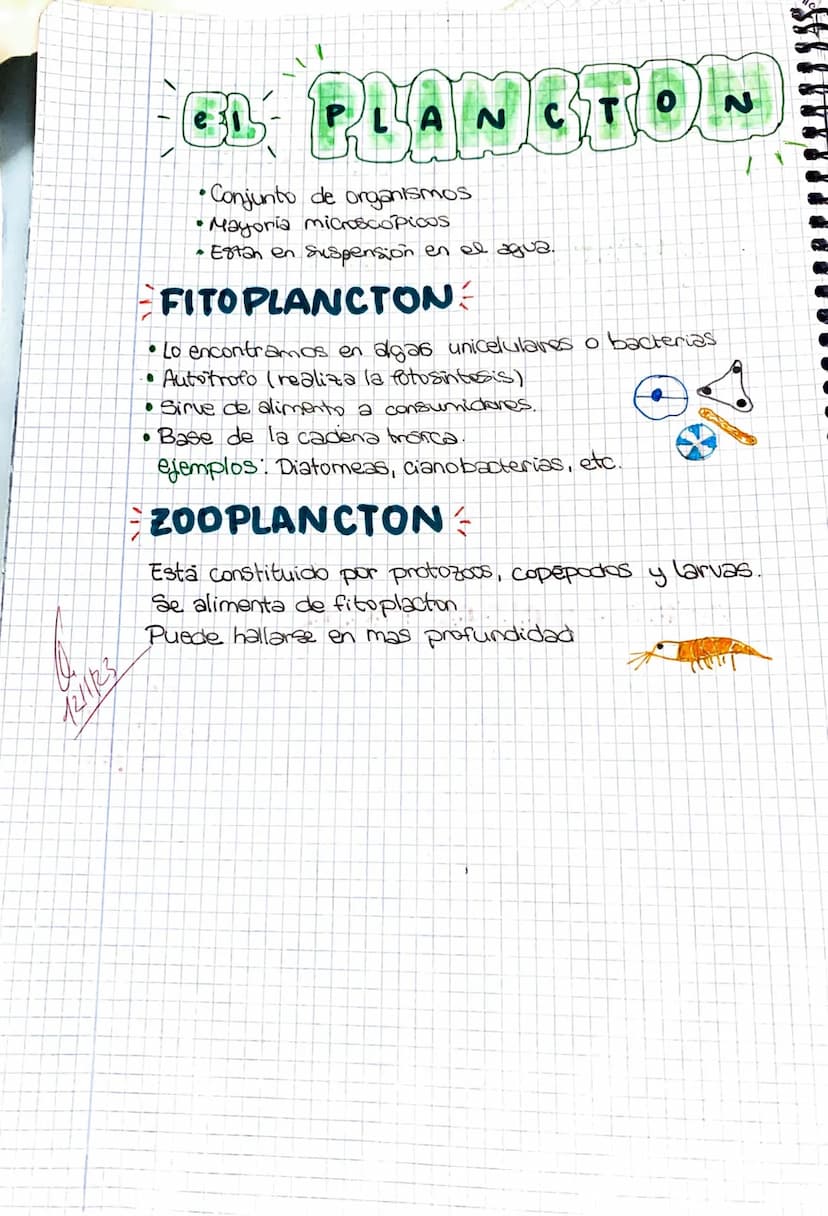 el PLANCTON
• Conjunto de organismos
• Mayoría microscópicos
• Están en suspensión en el agua.
FITOPLANCTON
• Lo encontramos en algas unicelulares o bacterias
• Autótrofo (realiza la fotosíntesis)
• Sirve de alimento a consumidores.
• Base de la cadena trófica.
ejemplos: Diatomeas, cianobacterias, etc.
ZOOPLANCTON
Está constituido por protozoos, copépodos y larvas.
Se alimenta de fitoplacton
Puede hallarse en mas profundidad
12/1/23